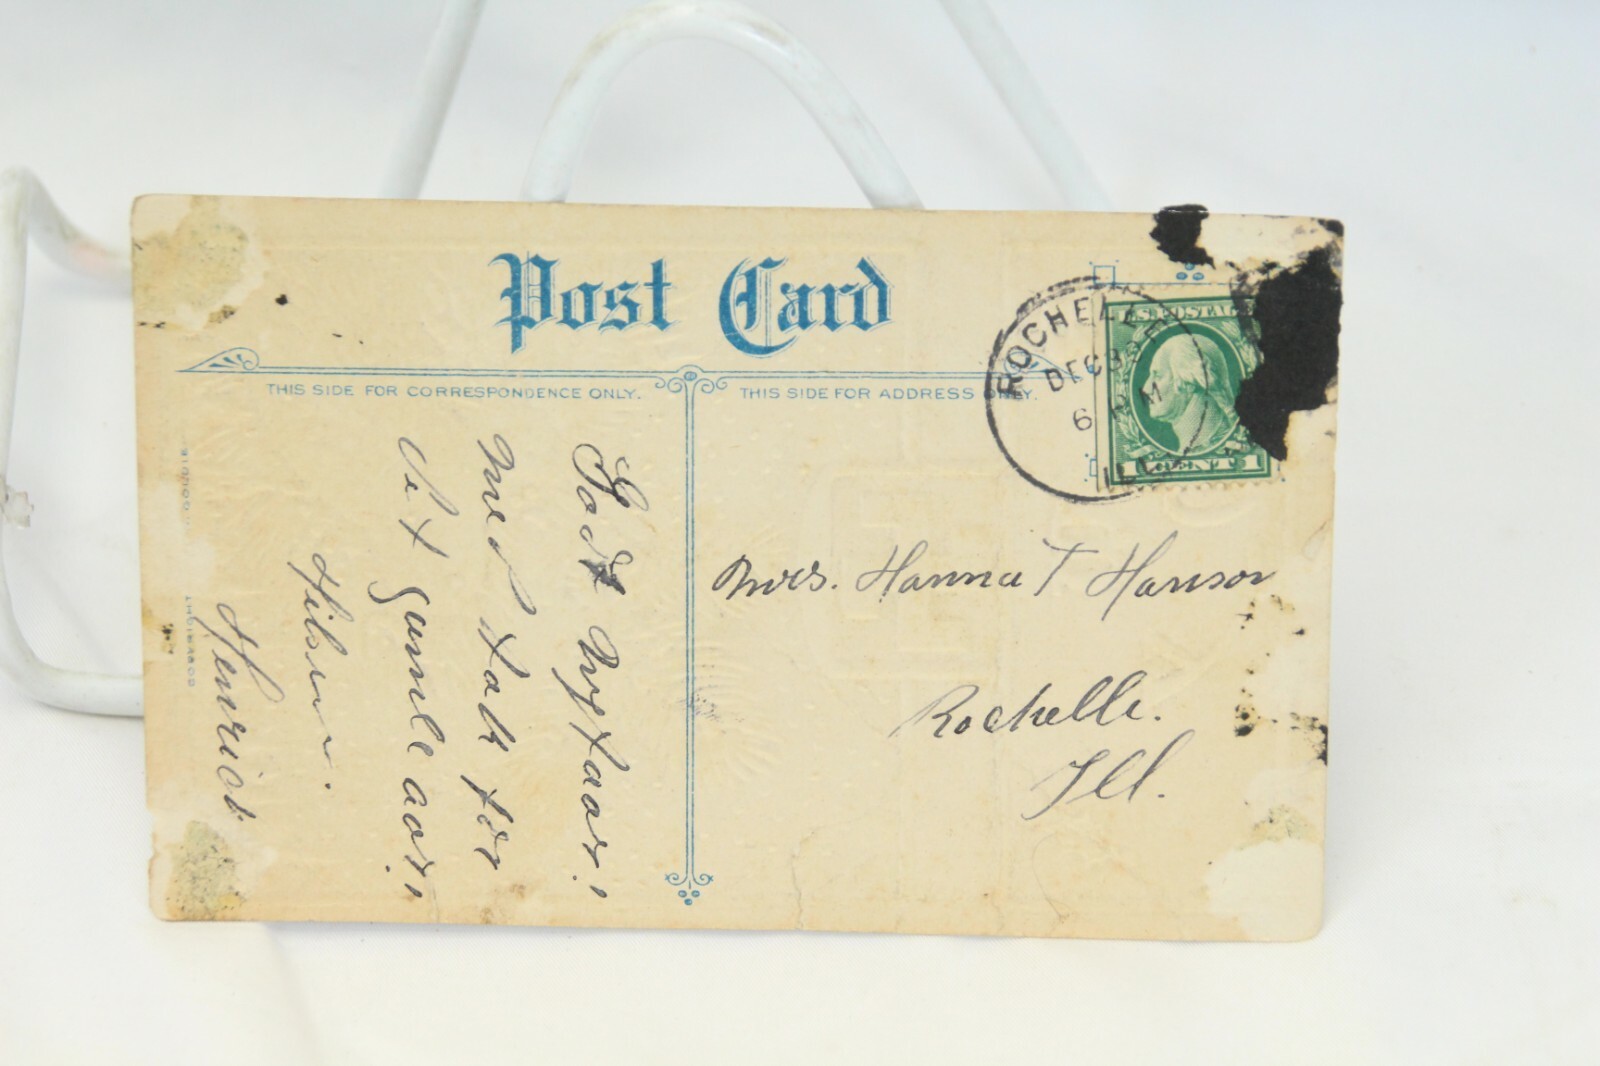 Post Card
THIS SIDE FOR CORRESPONDENCE ONLY.
THIS SIDE FOR ADDRESS ONLY.
ROCHELL
DEC 3
6 PM
ILL
U.S. POSTAG
1 CENT 1
Godt Nytaar!
med tak for
det gamle aar,
Hilsen.
Henrick
Mrs. Hanna T Hanson
Rochelle.
Ill.